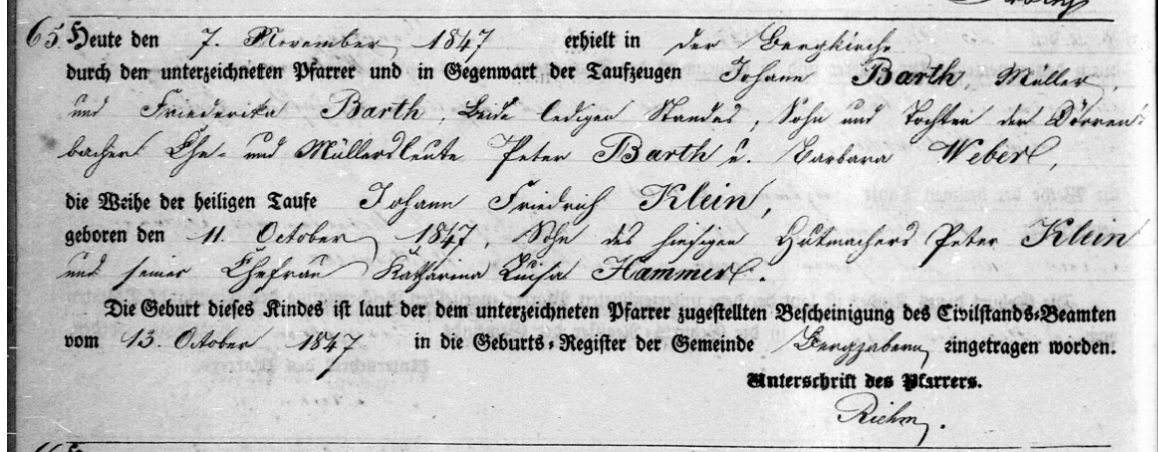 65. Heute den 7. November 1847 erhielt in der Bergkirche
durch den unterzeichneten Pfarrer und in Gegenwart der Taufzeugen Johann Barth, Müller,
und Friederika Barth, beide ledigen Standes, Sohn und Tochter der Dörren-
bacher Ehe- und Müllersleute Peter Barth u. Barbara Weber,
die Weihe der heiligen Taufe Johann Friedrich Klein,
geboren den 11. October 1847, Sohn des hiesigen Hutmachers Peter Klein
und seiner Ehefrau Katharina Luisa Hammer.
Die Geburt dieses Kindes ist laut der dem unterzeichneten Pfarrer zugestellten Bescheinigung des Civilstands-Beamten
vom 13. October 1847 in die Geburts-Register der Gemeinde Bergzabern eingetragen worden.
Unterschrift des Pfarrers.
Riehm.